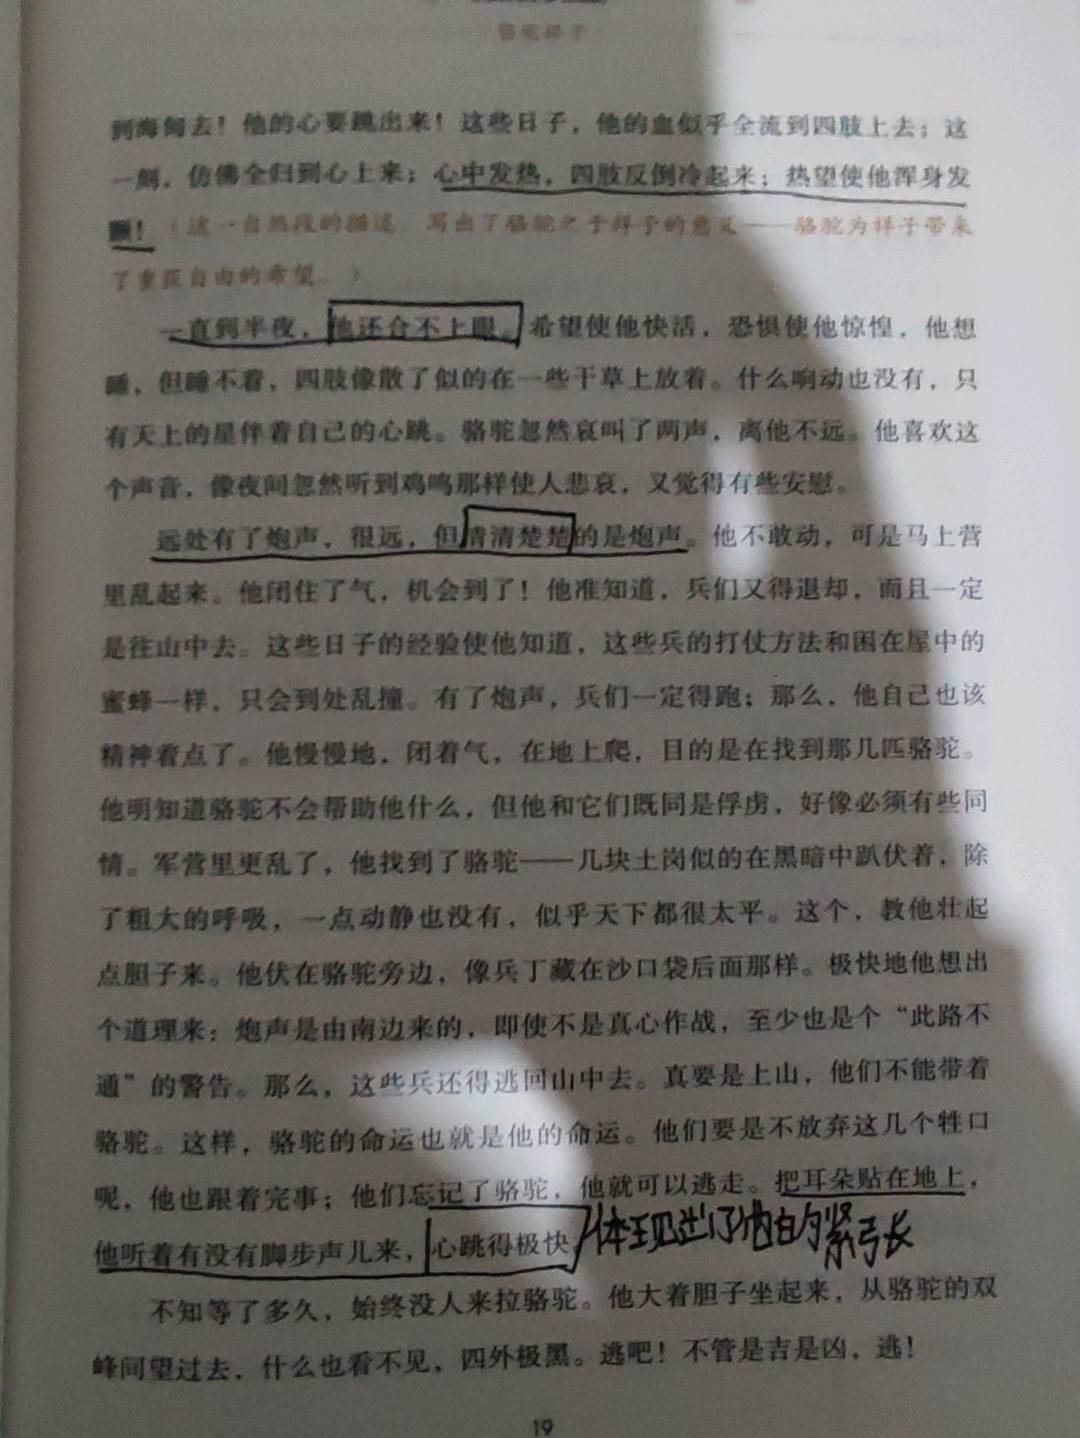 骆驼祥子
到海甸去！他的心要跳出来！这些日子，他的血似乎全流到四肢上去；这
一刻，仿佛全归到心上来；心中发热，四肢反倒冷起来；热望使他浑身发
颤！（这一自然段的描述，写出了骆驼之于祥子的意义——骆驼为祥子带来
了重获自由的希望。）
一直到半夜，他还合不上眼。希望使他快活，恐惧使他惊惶，他想
睡，但睡不着，四肢像散了似的在一些干草上放着。什么响动也没有，只
有天上的星伴着自己的心跳。骆驼忽然哀叫了两声，离他不远。他喜欢这
个声音，像夜间忽然听到鸡鸣那样使人悲哀，又觉得有些安慰。
远处有了炮声，很远，但清清楚楚的是炮声。他不敢动，可是马上营
里乱起来。他闭住了气，机会到了！他准知道，兵们又得退却，而且一定
是往山中去。这些日子的经验使他知道，这些兵的打仗方法和困在屋中的
蜜蜂一样，只会到处乱撞。有了炮声，兵们一定得跑；那么，他自己也该
精神着点了。他慢慢地，闭着气，在地上爬，目的是在找到那几匹骆驼。
他明知道骆驼不会帮助他什么，但他和它们既同是俘虏，好像必须有些同
情。军营里更乱了，他找到了骆驼——几块土岗似的在黑暗中趴伏着，除
了粗大的呼吸，一点动静也没有，似乎天下都很太平。这个，教他壮起
点胆子来。他伏在骆驼旁边，像兵丁藏在沙口袋后面那样。极快地他想出
个道理来：炮声是由南边来的，即使不是真心作战，至少也是个“此路不
通”的警告。那么，这些兵还得逃回山中去。真要是上山，他们不能带着
骆驼。这样，骆驼的命运也就是他的命运。他们要是不放弃这几个牲口
呢，他也跟着完事；他们忘记了骆驼，他就可以逃走。把耳朵贴在地上，
他听着有没有脚步声儿来，心跳得极快 体现出了他的紧张
不知等了多久，始终没人来拉骆驼。他大着胆子坐起来，从骆驼的双
峰间望过去，什么也看不见，四外极黑。逃吧！不管是吉是凶，逃！
19